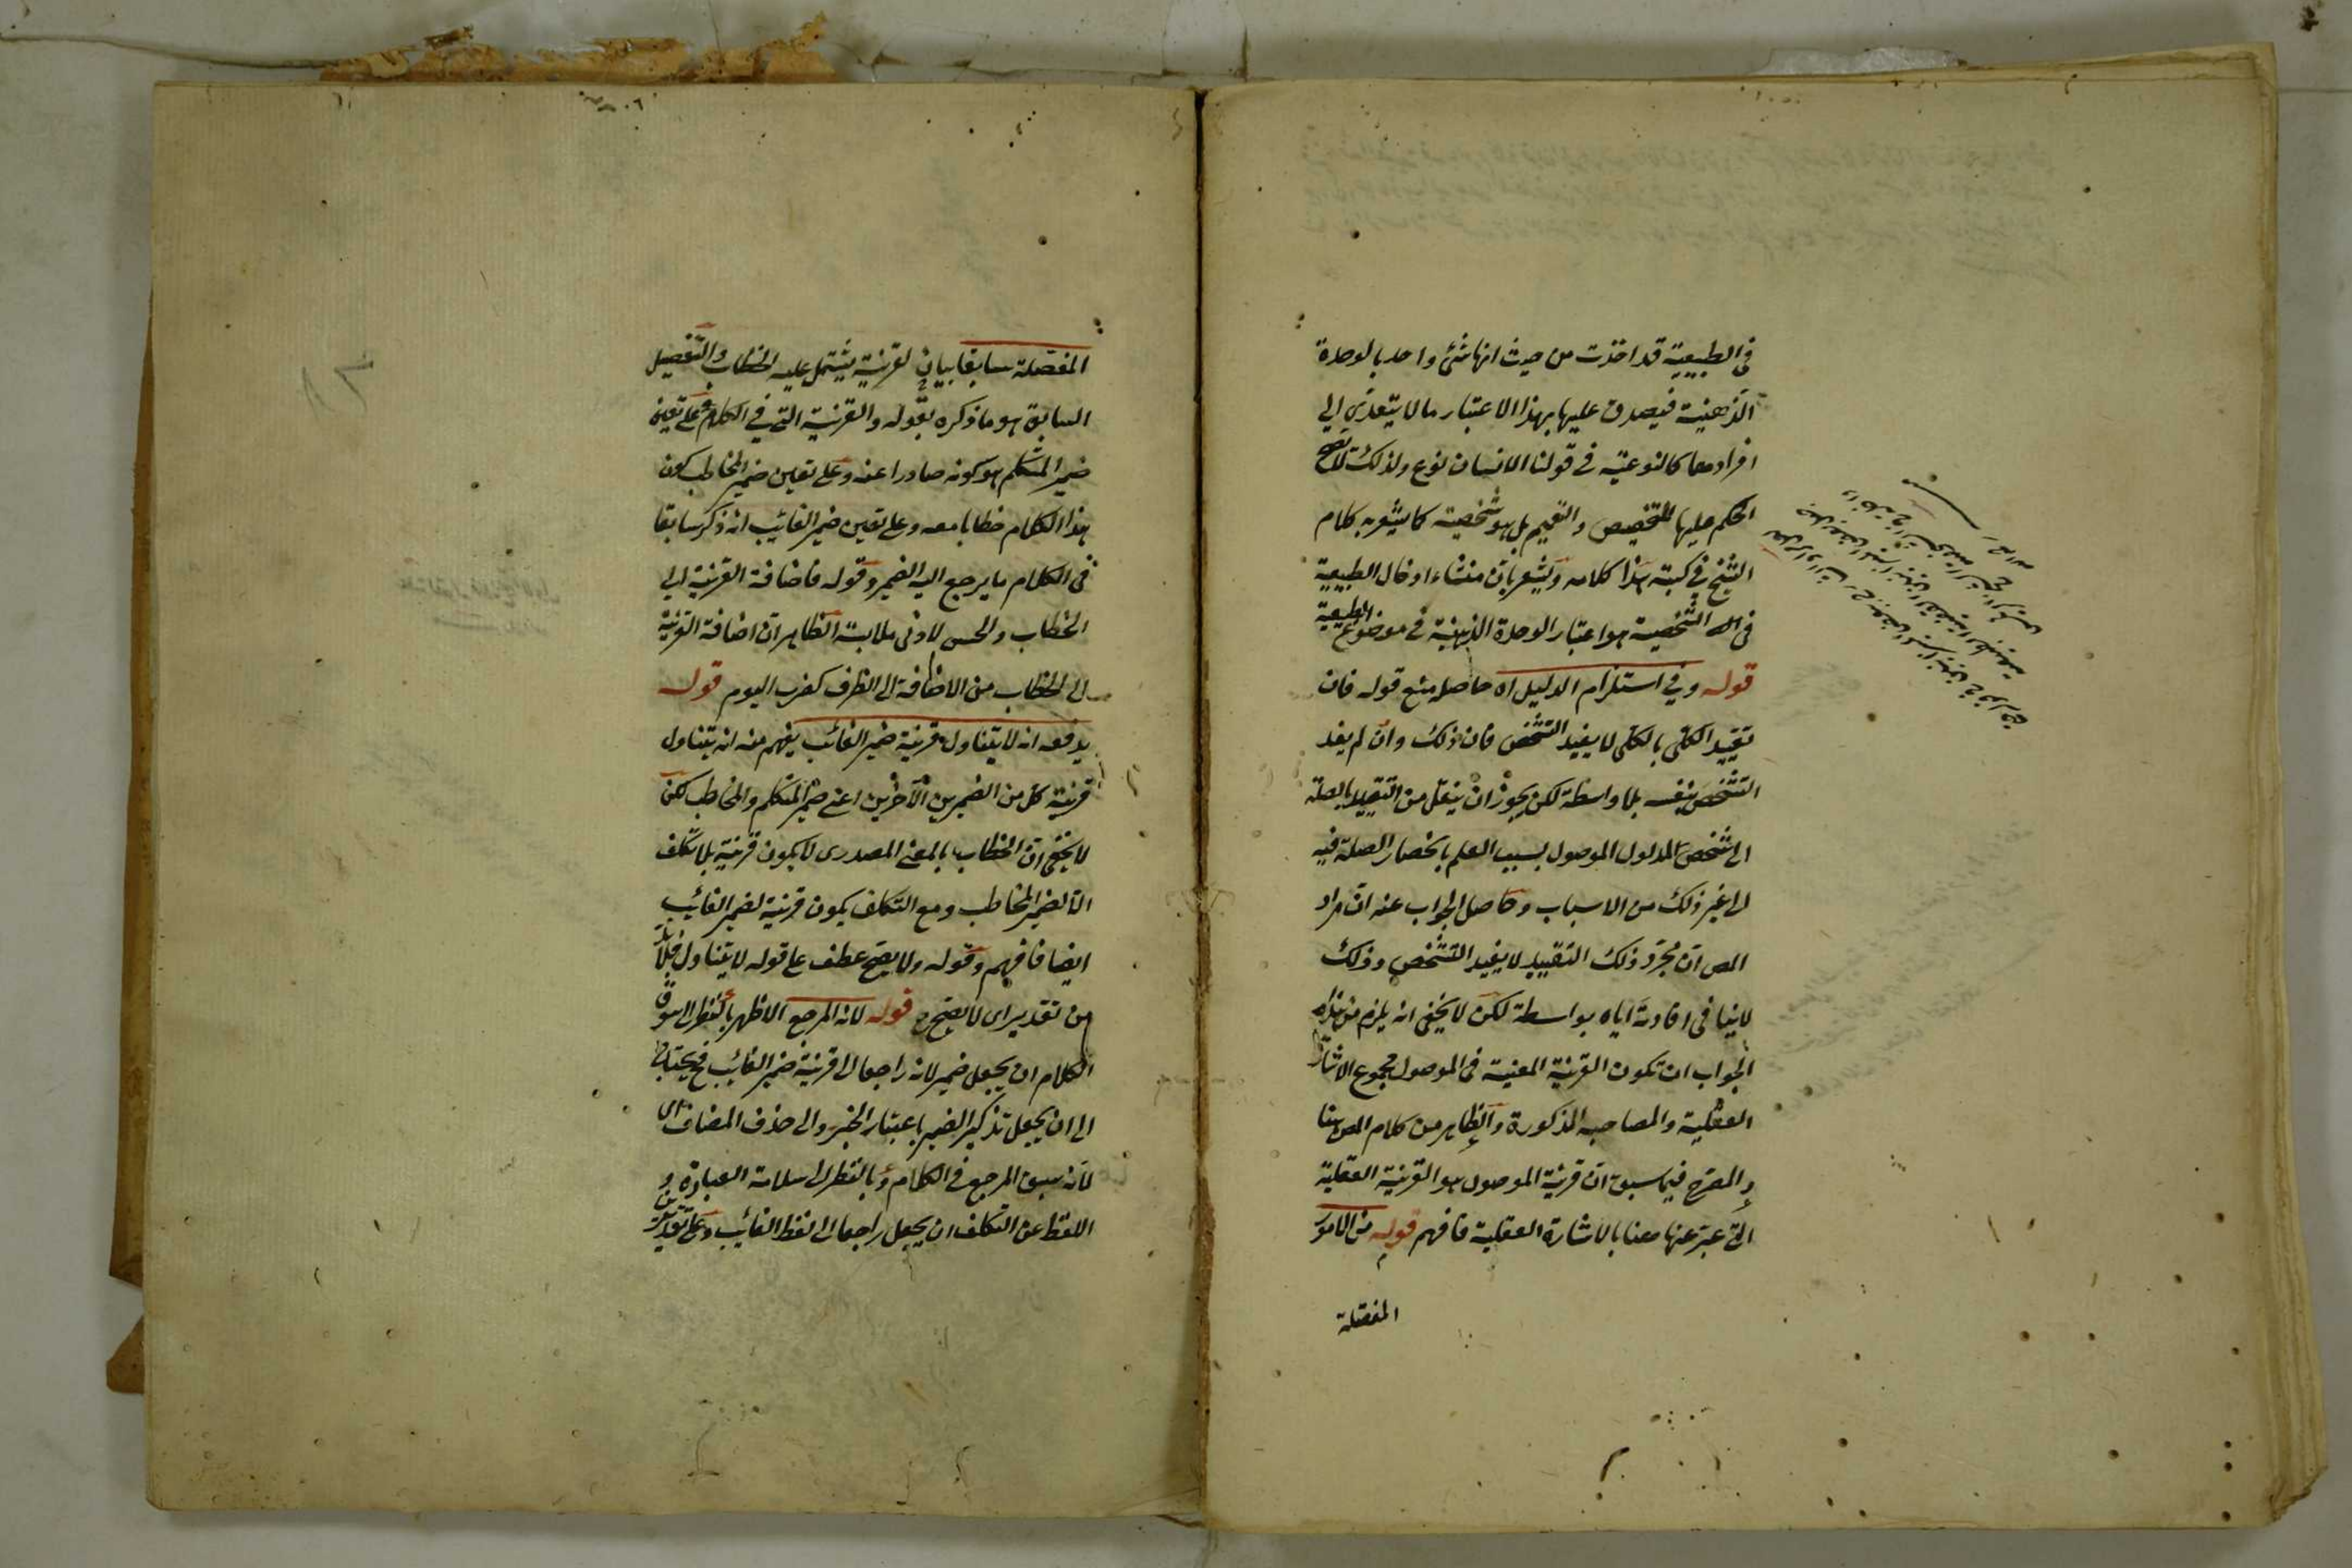 في الطبيعية قد اخذت من حيث انها شئ واحد بالوحدة
الذهنية فيصدق عليها بهذا الاعتبار ما لا يتعدى الى
افرادها كالنوعية في قولنا الانسان نوع ولذلك لا يصح
الحكم عليها بالتخصيص والتعميم بل هو شخصية كما يشعر به كلام
الشيخ في كتبه هذا كلامه ويشعر بان منشاء ادخال الطبيعية
في الشخصية هو اعتبار الوحدة الذهنية في موضوع الطبيعية
قوله وفي استلزام الدليل اه حاصل منع قوله فان
تقييد الكلي بالكلي لا يفيد التشخص فان ذلك وان لم يفد
التشخص بنفسه بلا واسطة لكن يجوز ان ينتقل من التقييد بالصلة
الى تشخص المدلول الموصول بسبب العلم بانحصار الصلة فيه
الى غير ذلك من الاسباب وحاصل الجواب عنه ان مراد
المص ان مجرد ذلك التقييد لا يفيد التشخص وذلك
لا ينافي افادته اياه بواسطة لكن لا يخفى انه يلزم من هذا
الجواب ان تكون القرينة المعينة في الموصول مجموع الاشارة
العقلية والمصاحبه المذكورة والظاهر من كلام المص هنا
والمصرح فيما سبق ان قرينة الموصول هو القرينة العقلية
التي عبر عنها هنا بالاشارة العقلية فافهم قوله من الامور
المفصلة
المفصلة سابقا بيان لقرينة يشتمل عليه الخطاب والتفصيل
السابق هو ما ذكره بقوله والقرينة التي في الكلام على تعين
ضمير المتكلم هو كونه صادرا عنه وعلى تعين ضمير المخاطب كون
هذا الكلام خطابا معه وعلى تعين ضمير الغائب انه ذكر سابقا
في الكلام ما يرجع اليه الضمير وقوله فاضافة القرينة الى
الخطاب والحس لادنى ملابسة الظاهر ان اضافة القرينة
الى الخطاب من الاضافة الى الظرف كضرب اليوم قوله
يدفعه انه لا يتناول قرينة ضمير الغائب يفهم منه انه يتناول
قرينة كل من الضميرين الآخرين اعني ضمير المتكلم والمخاطب لكن
لا يخفى ان الخطاب بالمعنى المصدرى لا يكون قرينة بلا تكلف
الا لضمير المخاطب ومع التكلف يكون قرينة لضمير الغائب
ايضا فافهم وقوله ولا يصح عطف على قوله لا يتناول فلا بد
من تقدير اى لا يصح قوله لانه المرجع الاظهر بالنظر الى سوق
الكلام ان يجعل ضمير لانه راجعا الى قرينة ضمير الغائب فح يحتاج
الى ان يجعل تذكير الضمير باعتبار الخبر والى حذف المضاف اى
لانه سبق المرجع في الكلام وبالنظر الى سلامة العبارة و
اللفظ عن التكلف ان يجعل راجعا الى لفظ الغائب وعلى تقديرين